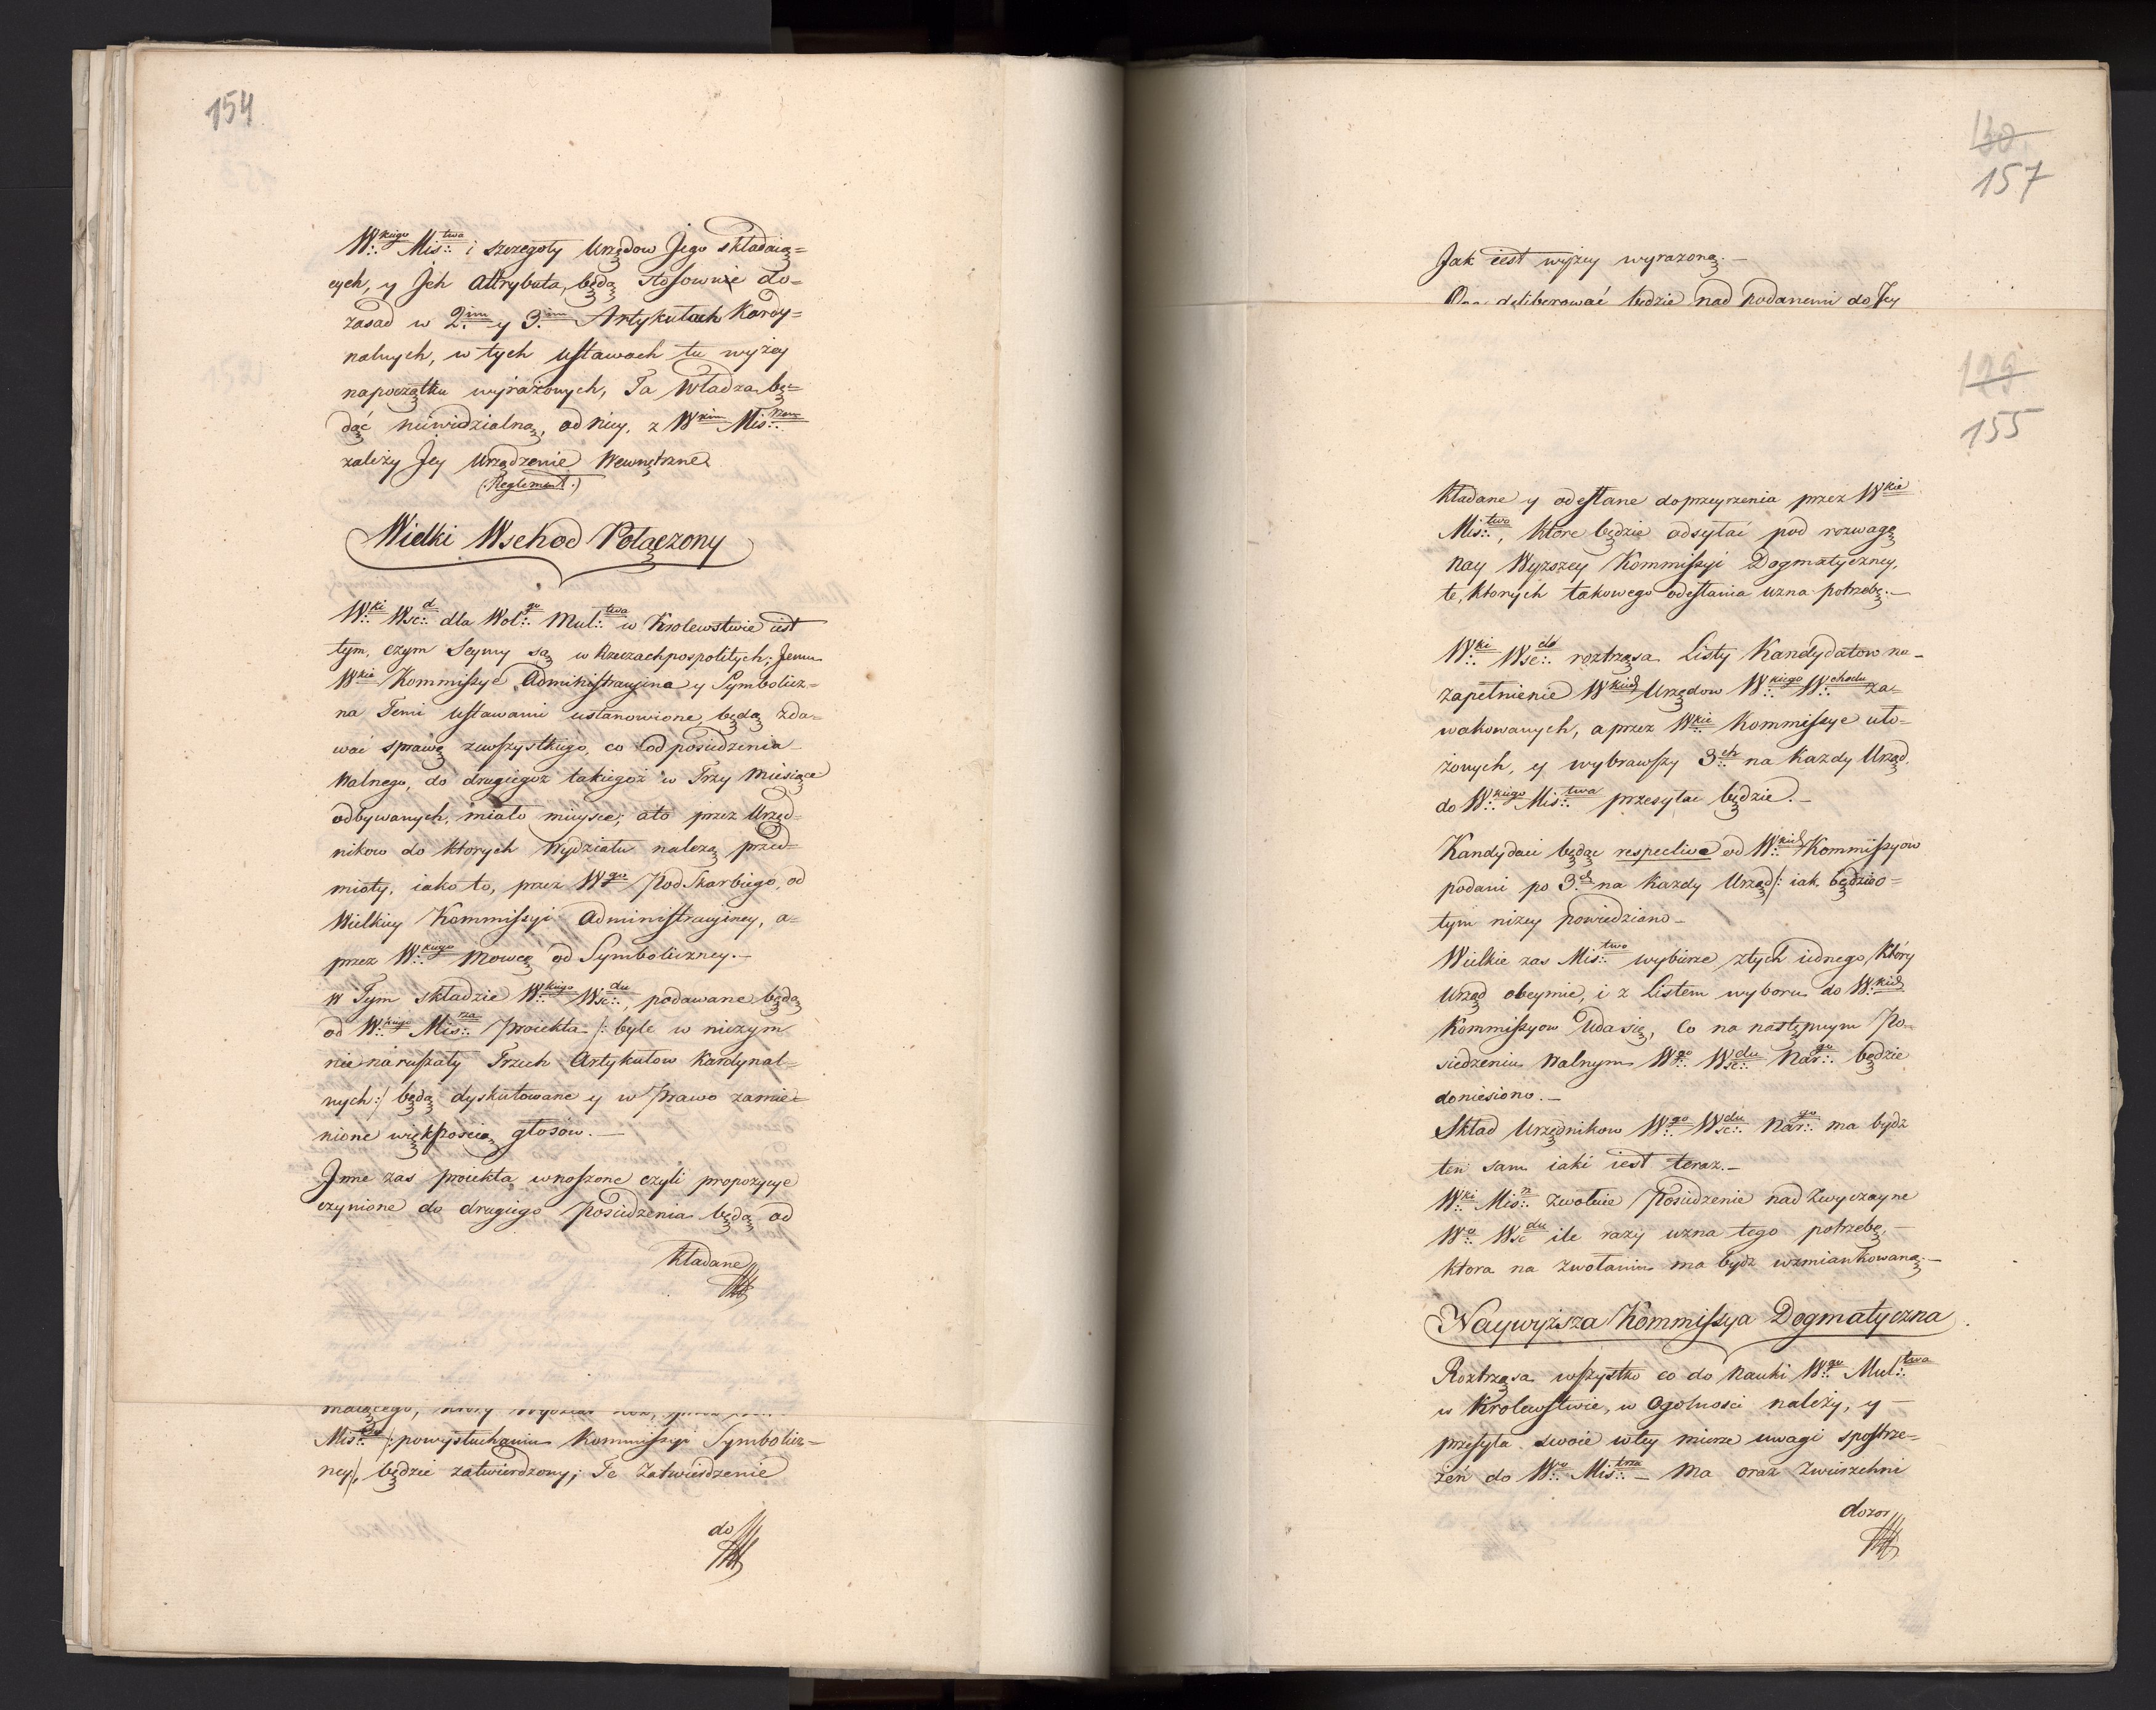 154
W:kiego Mis:twa i szczegoły Urzędow Jego składaią=
cych, y Jch Attrybuta, będą stosownie do=
zasad w 2im y 3im Artykułach Kardy=
nalnych, w tych Ustawach tu wyżey
napoczątku wyrażonych, Ta Władza bę=
dąć niewidzialną, od niey, z Wkim Mis:
zależy Jey Urządzenie Wewnętrzne
(:Reglement:)
Wielki Wschod Połączony
W:ki Wsc:d dla Wol:go Mul:twa w Krolewstwie iest
tym, czym Seymy są w Rzeczachpospolitych; Jemu
Wkie Kommissye Administracyina y Symbolicz=
na Temi Ustawami ustanowione, będą zda=
wać sprawę zewszystkiego, co od posiedzenia
Walnego, do drugiegoż takiegoż w Trzy Miesiące
odbywanych, miało mieysce; ato przez Urzęd=
nikow do ktorych Wydziału należą przed=
mioty, iako to, przez Wgo Pod Skarbiego, od
Wielkiey Kommissyi Administracyiney, a=
przez W:kiego Mowcę od Symboliczney.—
w Tym składzie W:kiego Wsc:du, podawane będą
od W:kiego Mis:rza Proiekta /: byle w niczym
nie naruszały Trzech Artykułow Kardynal=
nych :/ będą dyskutowane y w Prawo zamie=
nione większoscią głosów.—
Jnne zas proiekta wnoszone czyli propozycye
czynione do drugiego Posiedzenia będą od
kładane
Mis: /: powysłuchaniu Kommissyi Symbolicz=
ney/, będzie zatwierdzony; Te Zatwierdzenie
do
130
157
Jak iest wyżey wyrazoną.—
Ona deliberować będzie nad Podanemi do Jey
129
155
kładane y odesłane doprzeyrzenia przez Wkie
Mis:two, ktore będzie odsyłać pod rozwagę
Nay Wyzszey Kommissyi Dogmatyczney,
te, ktorych takowego odesłania uzna potrzebę.—
W:ki Wsc:d roztrząsa Listy Kandydatow na=
zapełnienie Wkich Urzędow W:kiego W:chodu za=
wakowanych, a przez Wkie Kommissye uło=
żonych, y wybrawszy 3:ch na kazdy Urząd,
do W:kiego Mis:twa przesyłac będzie.—
Kandydaci będąc respective od W:kich Kommissyow
podani po 3ch na kazdy Urząd /: iak będzie o=
tym niżey powiedziano—
Wielkie zas Mis:two wybierze ztych iednego, który
Urząd obeymie, i z Listem wyboru do W:kich
Kommissyow Uda się, Co na następnym Po=
siedzeniu Walnym W:go Wsc:du Nar:go będzie
doniesiono.—
Skład Urzędnikow W:go Wsc:du Nar:go ma bydz
ten sam iaki iest teraz.—
W:ki Mis: zwołuie Posiedzenie nad Zwyczayne
W:o Wscdu ile razy uzna tego potrzebę,—
ktora na zwołaniu ma bydz wzmiankowaną.—
Naywyższa Kommissya Dogmatyczna
Roztrząsa wszystko co do Nauki W:go Mul:twa
w Krolewstwie, w Ogolnosci należy, y—
przesyła swoie wtey mierze uwagi spostrze=
żeń do W:o Mis:trza — Ma oraz Zwierzchni
dozor